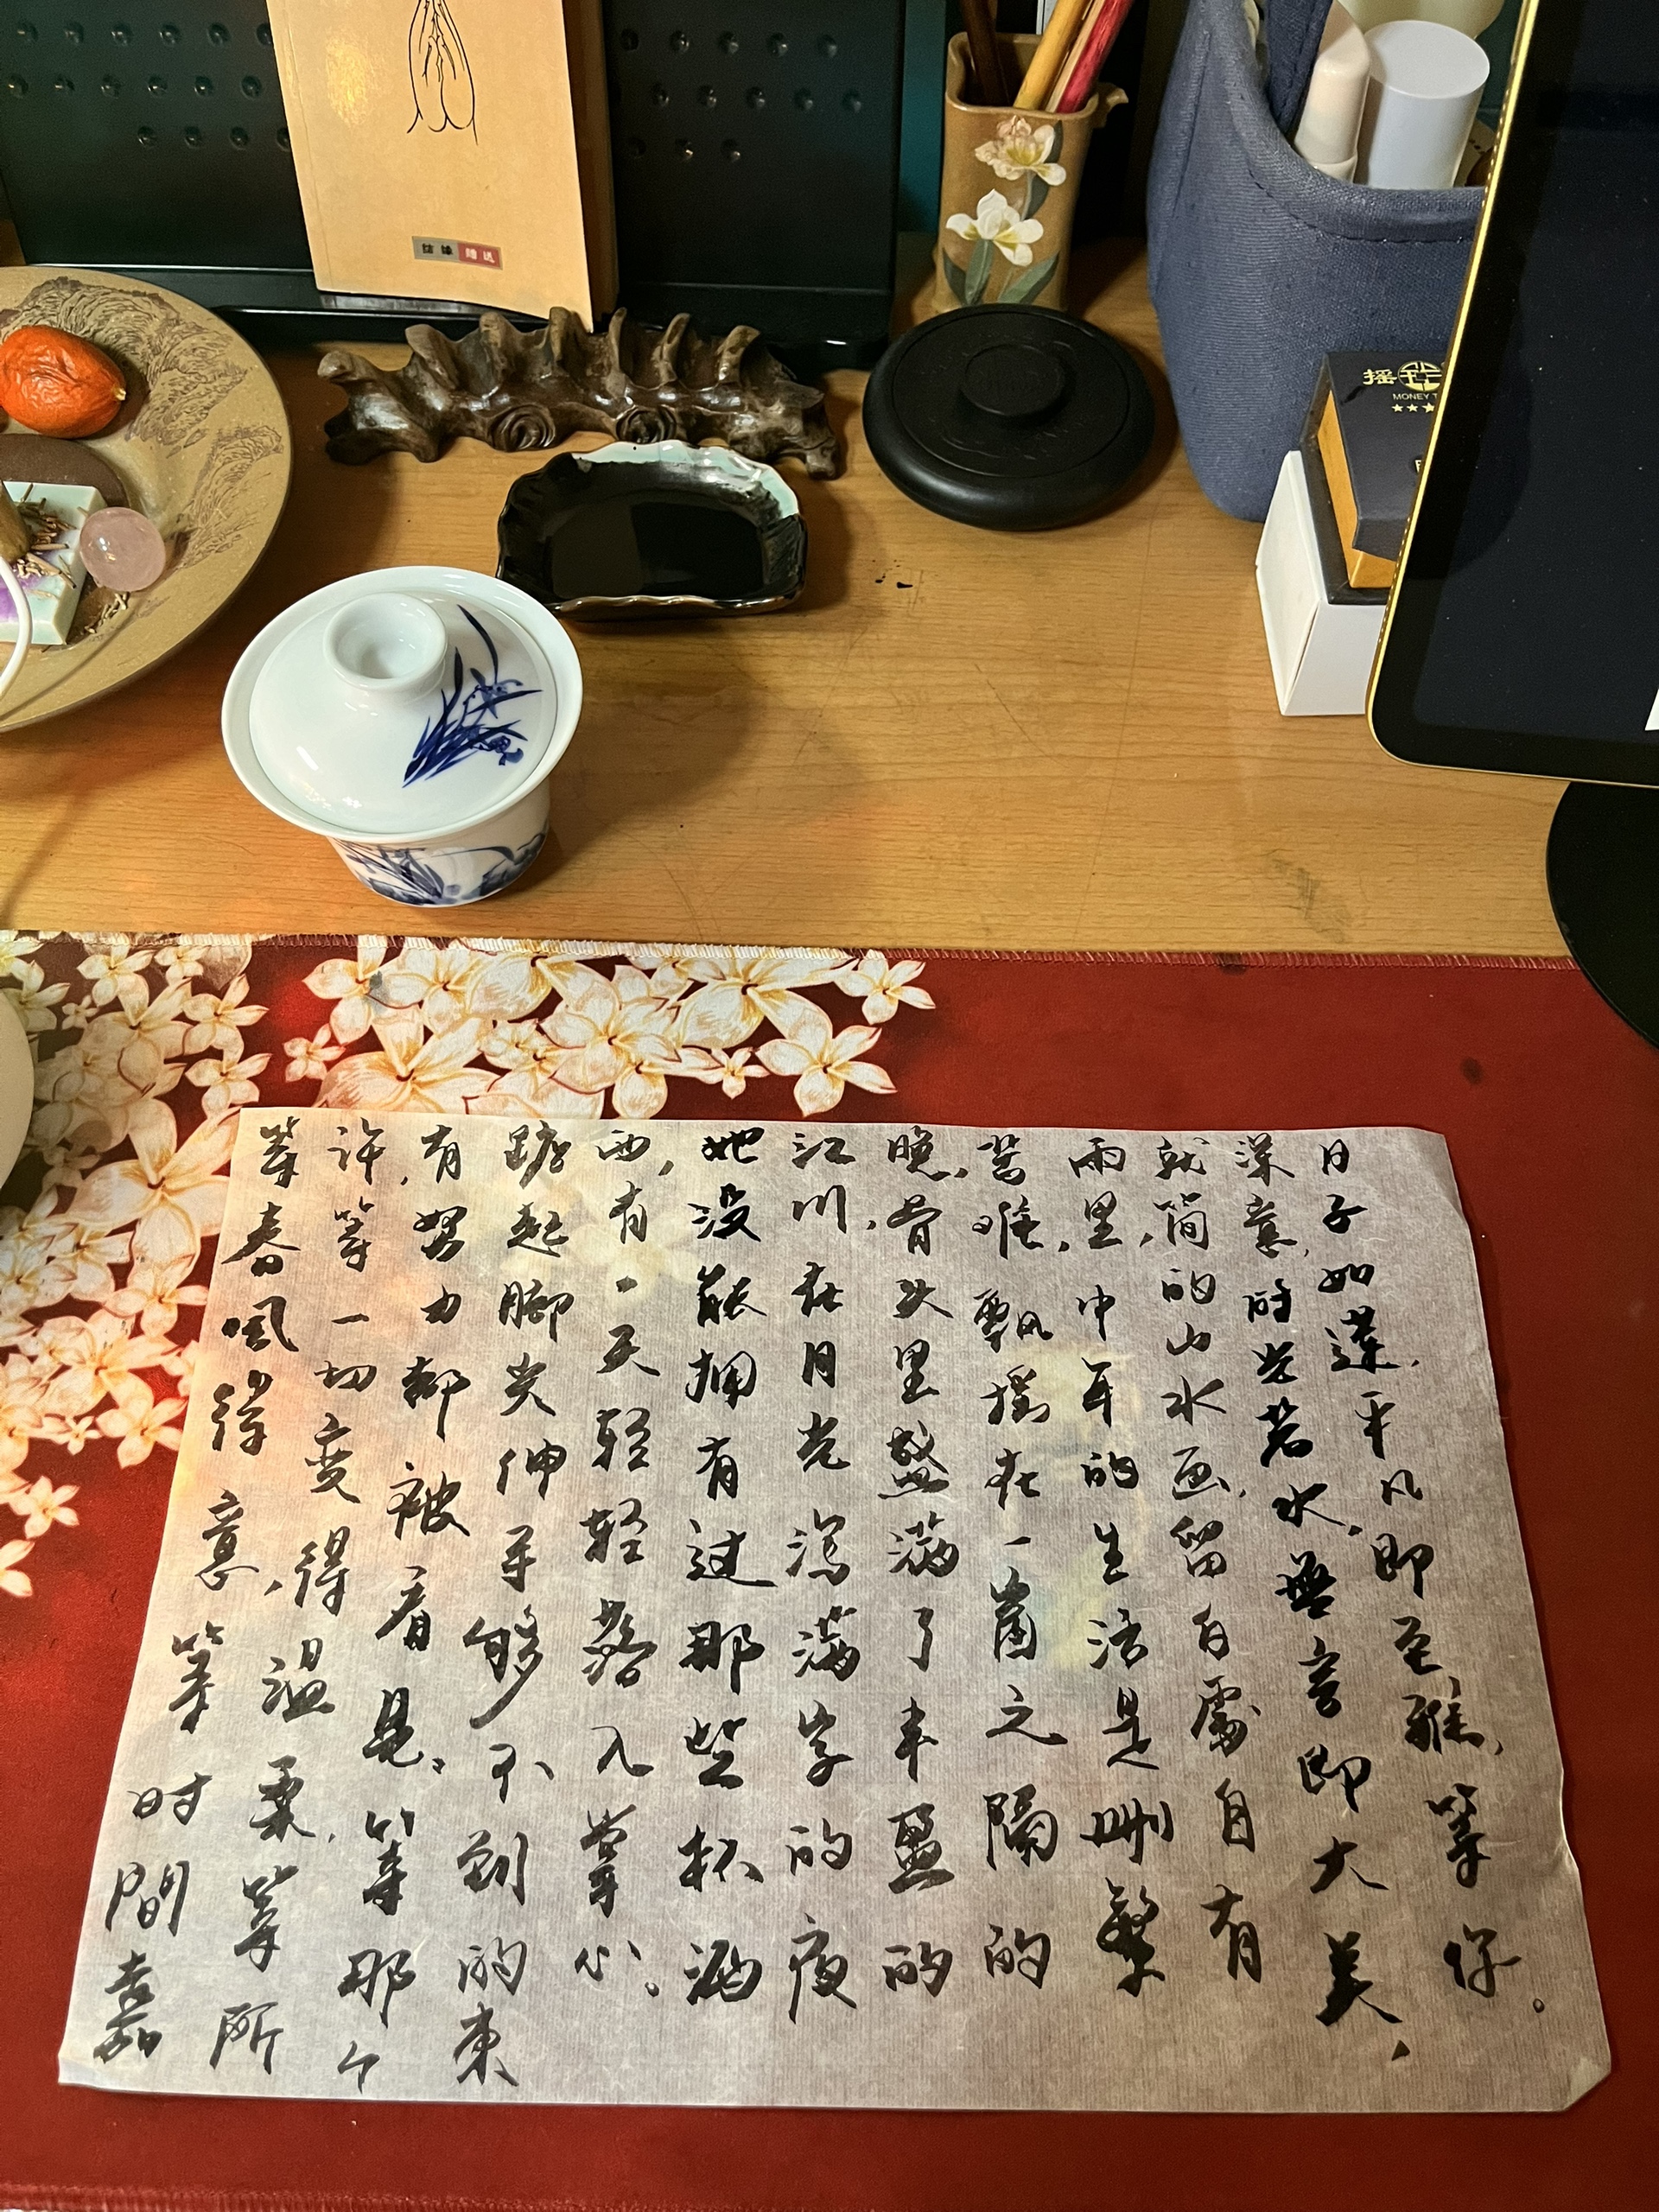 结缘 赠送
摇
MONEY T
等春風得意,等时間嘉
许,等一切变得温柔,等所
有努力都被看見。等那个
踮起脚尖伸手够不到的東
西,有一天轻轻落入掌心。
她没能拥有过那些杯酒
江川,在月光泻满字的夜
晚,骨头里满了丰盈的
飘摇在一窗之隔的
雨里,中年的生活是删繁
就简的山水画,留白處自有
深意,时光若水,無言即大美,
日子如莲,平凡即至雅,等你。